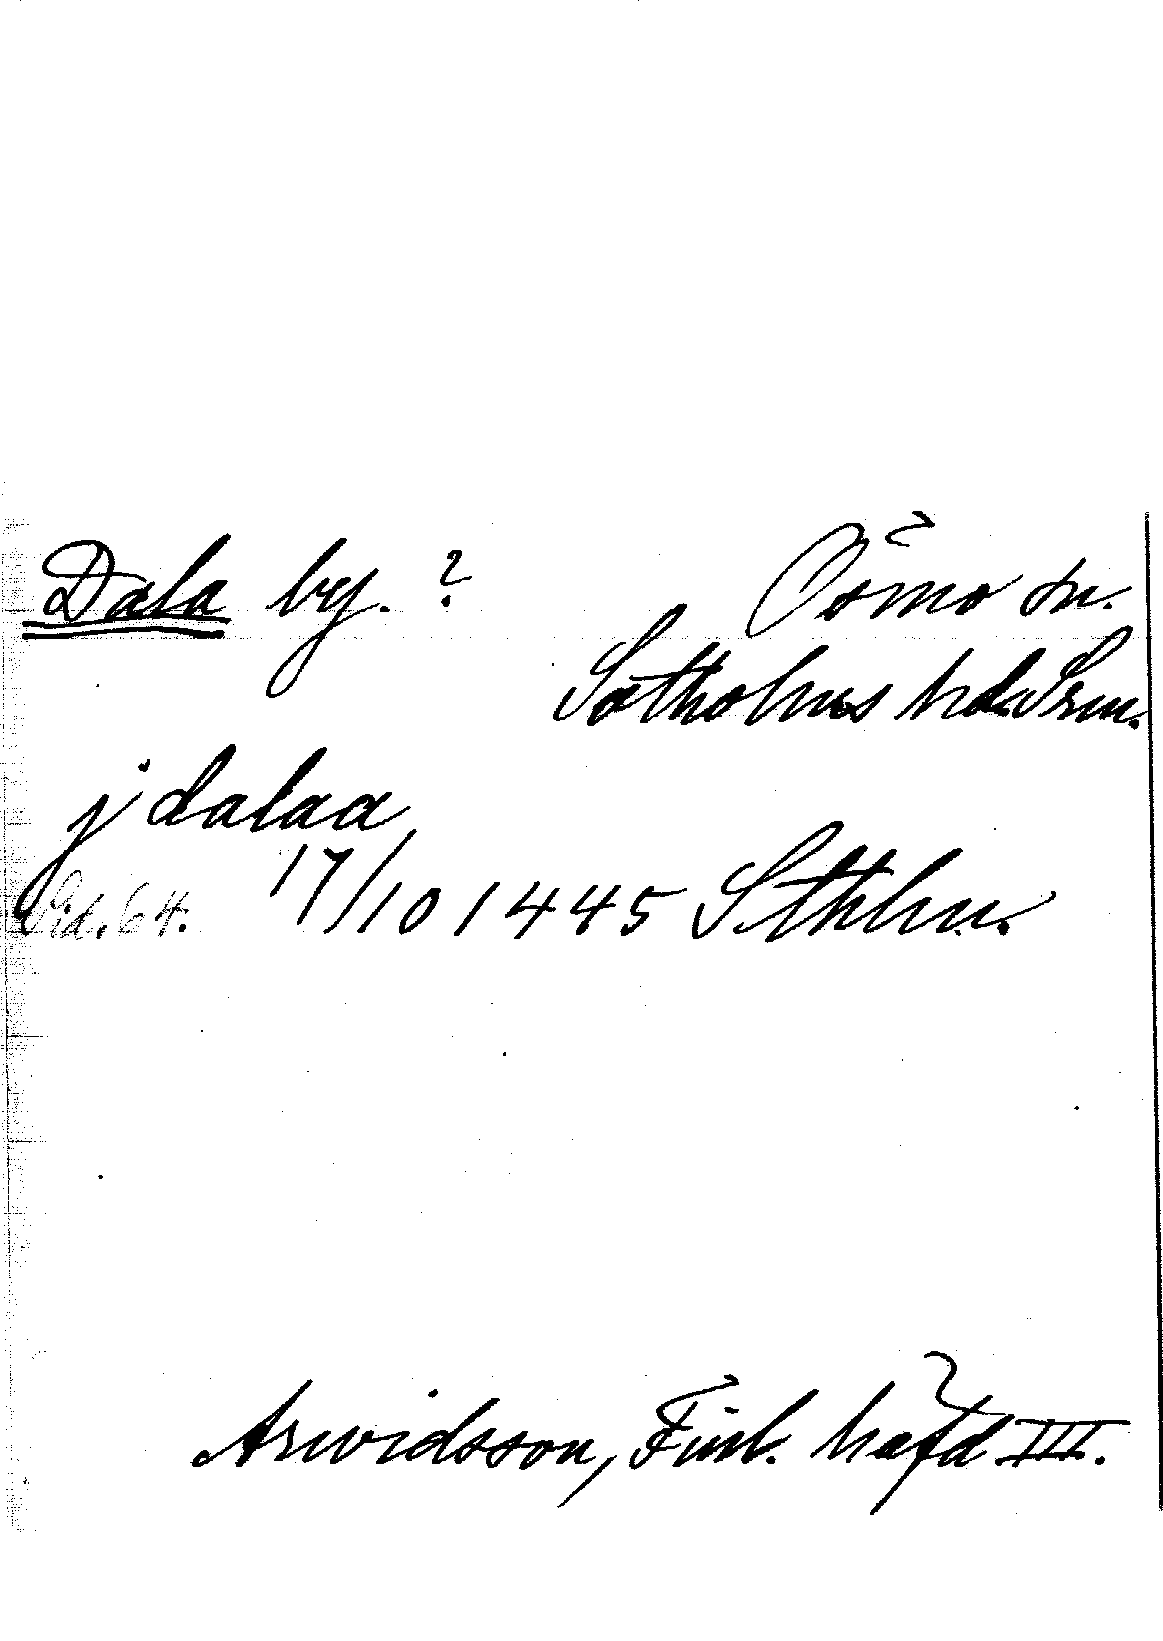 Dala by. ?
Ösmo sn.
Sotholms hd. Srm.
j dalaa
Sid. 64. 17/10 1445 Sthlm.
Arwidsson, Finl. häfd III.